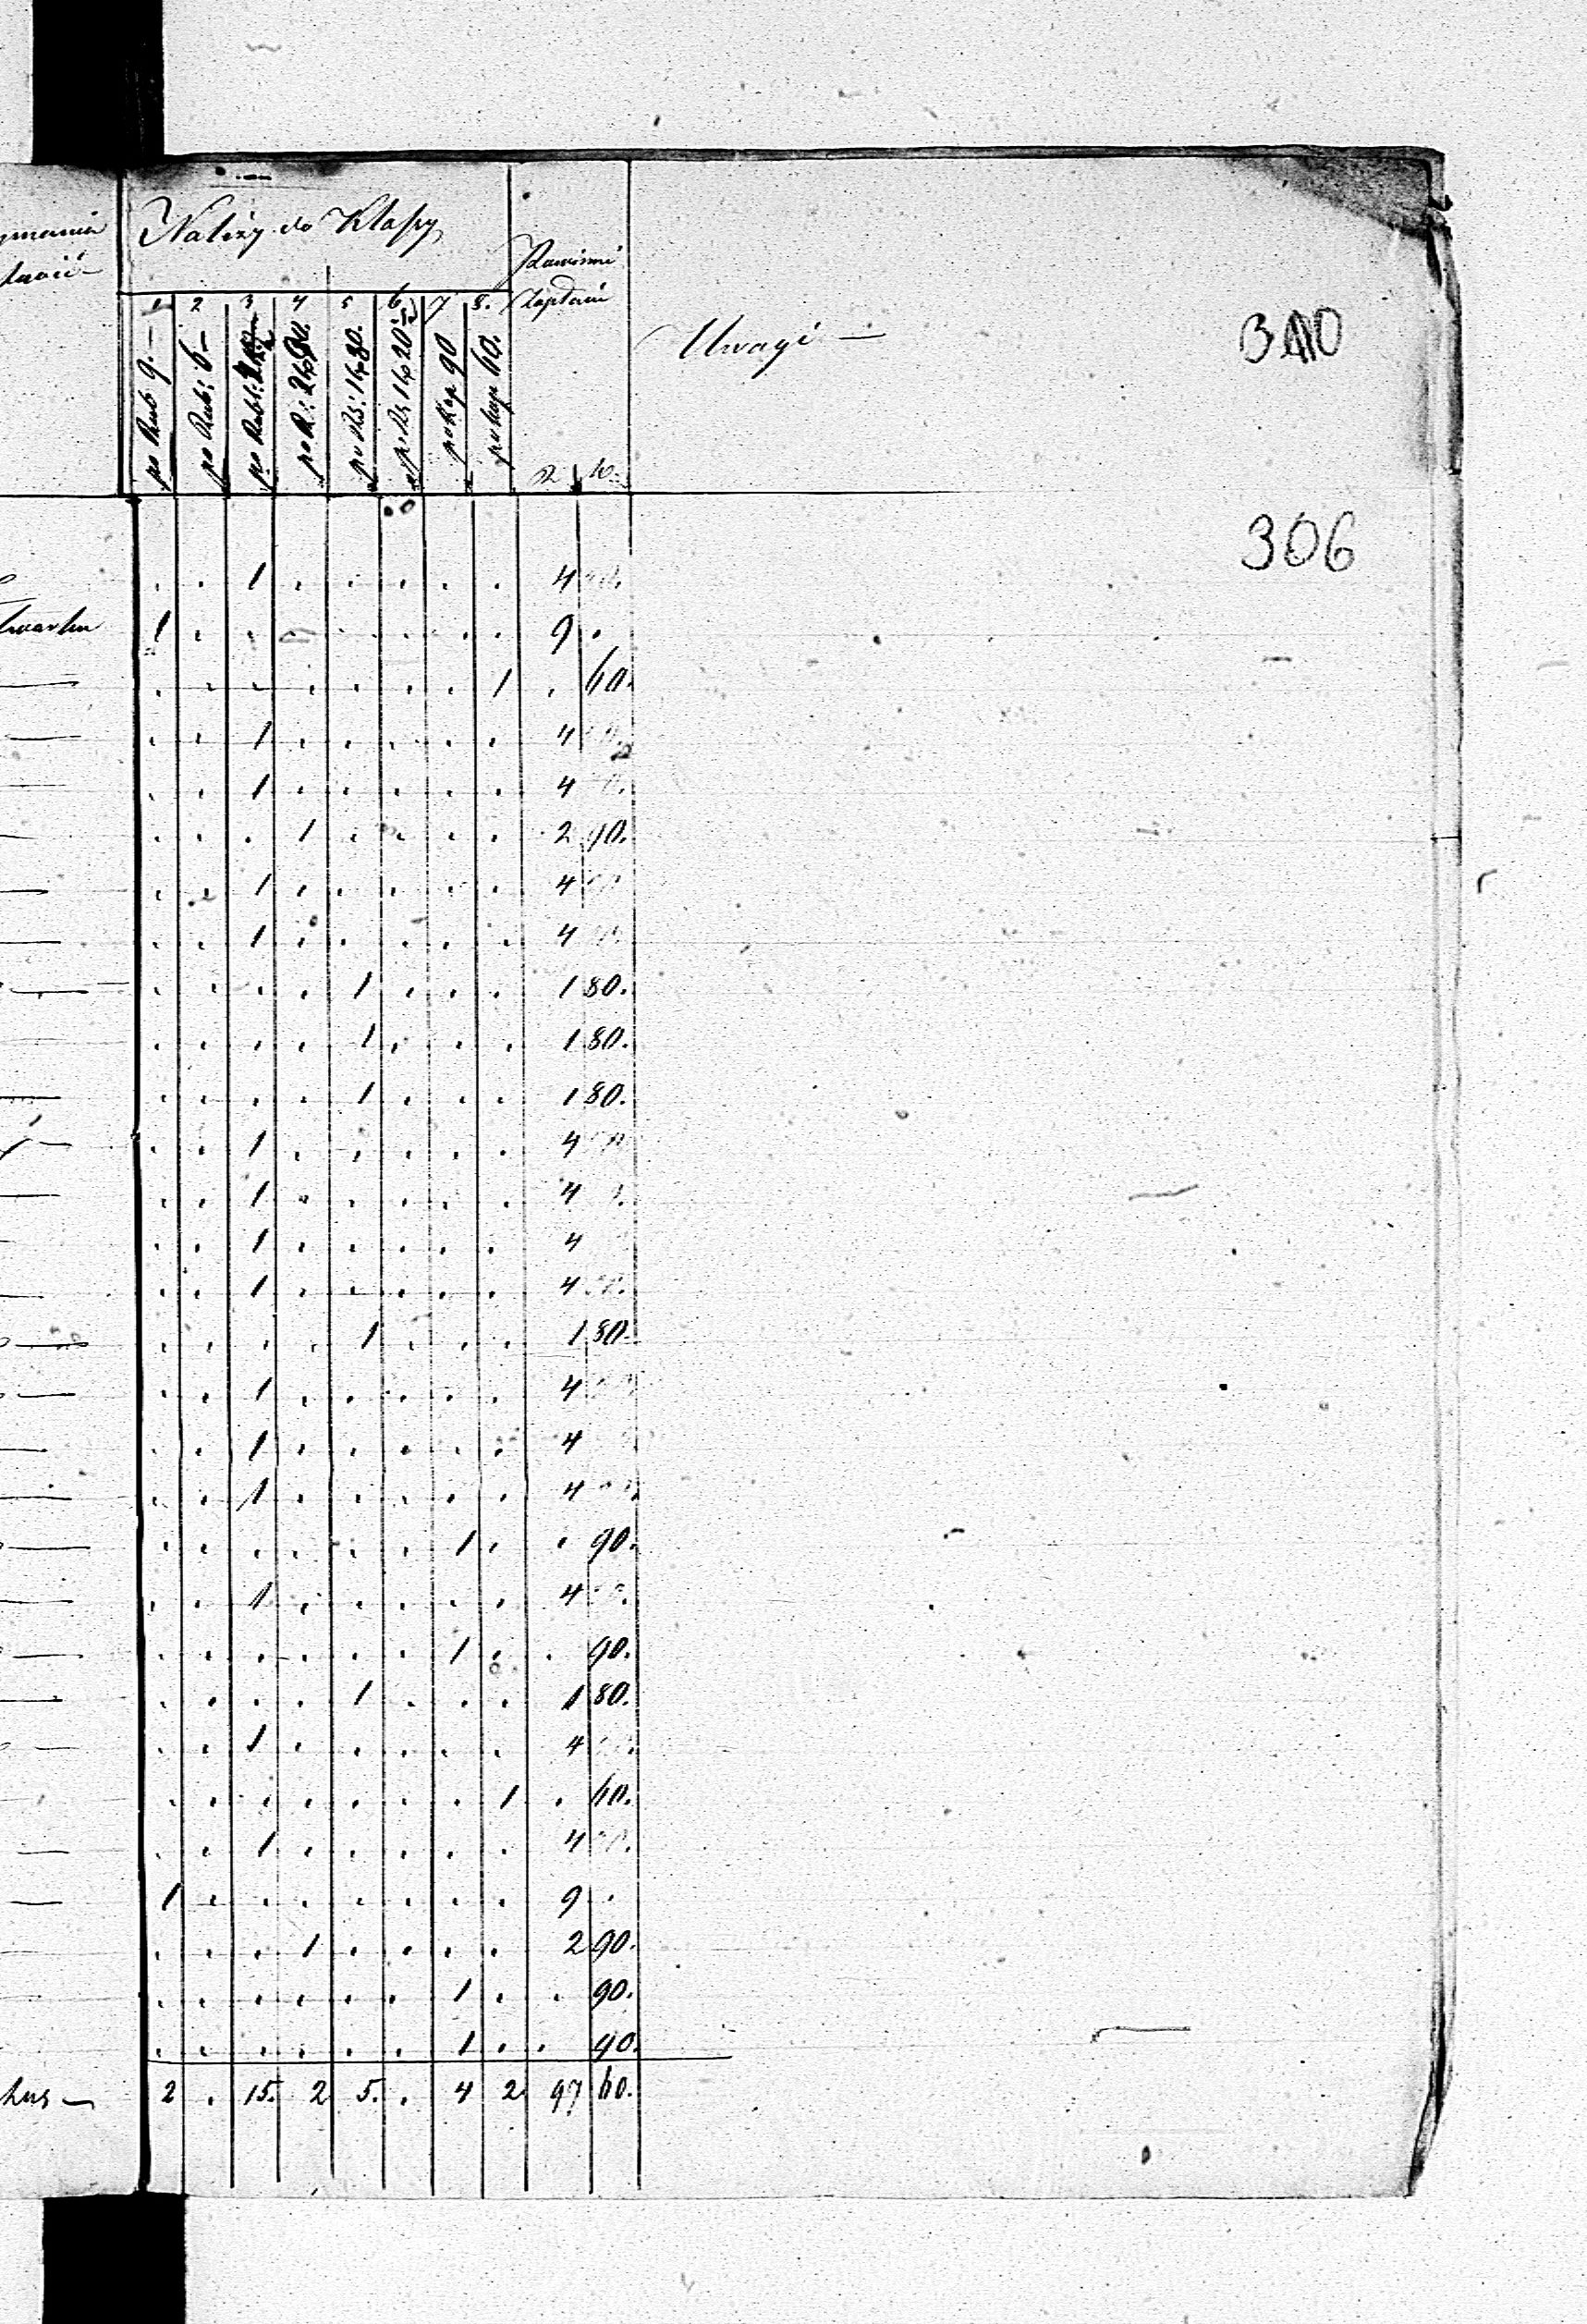 Należy do Klassy
Powinni
Zapłacić
Uwagi —
1 2 3 4 5 6 7 8.
po Rub 9.—
po Rub: 6—
po Rubl:
po R: 2 kp 90.
po Rs: 1 kp 80.
po Rs 1 kp 20
po Kop 90
po kop 60.
R k.
306
. . 1 . . . . . 4
1 . . . . . . . 9 .
. . . . . . . 1 . 60.
. . 1 . . . . . 4
. . 1 . . . . . 4
. . . 1 . . . . 2 90.
. . 1 . . . . . 4
. . 1 . . . . . 4
. . . . 1 . . . 1 80.
. . . . 1 . . . 1 80.
. . . . 1 . . . 1 80.
. . 1 . . . . . 4
. . 1 . . . . . 4
. . 1 . . . . . 4
. . 1 . . . . . 4
. . . . 1 . . . 1 80.
. . 1 . . . . . 4
. . 1 . . . . . 4
. . 1 . . . . . 4
. . . . . . 1 . . 90.
. . 1 . . . . . 4
. . . . . . 1 . . 90.
. . . . 1 . . . 1 80.
. . 1 . . . . . 4
. . . . . . . 1 . 60.
. . 1 . . . . . 4
1 . . . . . . . 9 .
. . . 1 . . . . 2 90.
. . . . . . 1 . . 90.
. . . . . . 1 . . 90.
2 . 15. 2 5. . 4 2 97 60.